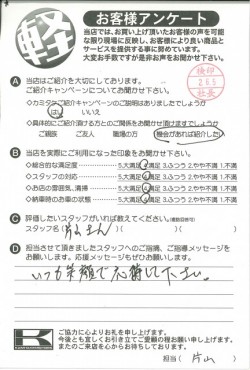 軽
お客様アンケート
当店では、お買い上げ頂いたお客様の声を可能
な限り現場に反映し、お客様により良い商品と
サービスを提供する事に努めています。
大変お手数ですが是非お声をお聞かせ下さい。
検印
2.6.5
社長
A 当店はご紹介を大切にしております。
ご紹介キャンペーンについてお聞かせ下さい。
◇カミタケご紹介キャンペーンのご説明はありましたでしょうか
はい いいえ
◇具体的にご紹介頂ける方とのご関係をお聞かせ頂けますでしょうか
ご親族 ご友人 職場の方 機会があれば紹介したい
B 当店を実際にご利用になった印象をお聞かせ下さい。
◇総合的な満足度 5.大満足 4.満足 3.ふつう 2.やや不満 1.不満
◇スタッフの対応 5.大満足 4.満足 3.ふつう 2.やや不満 1.不満
◇お店の雰囲気、清掃 5.大満足 4.満足 3.ふつう 2.やや不満 1.不満
◇納車時のお車の状態 5.大満足 4.満足 3.ふつう 2.やや不満 1.不満
C 評価したいスタッフがいれば教えてください。(複数回答可)
スタッフ名( さん )
D 担当させて頂きましたスタッフへのご指摘、ご指導メッセージを
お願いします。応援メッセージもぜひお願いします。
いつも笑顔で応対して下さい。
K
ご協力に心よりお礼を申し上げます。
今後とも宜しくお引き立てご愛顧の程お願い申し上げます。
またのご来店を心からお待ちしております。
担当( 片山 )